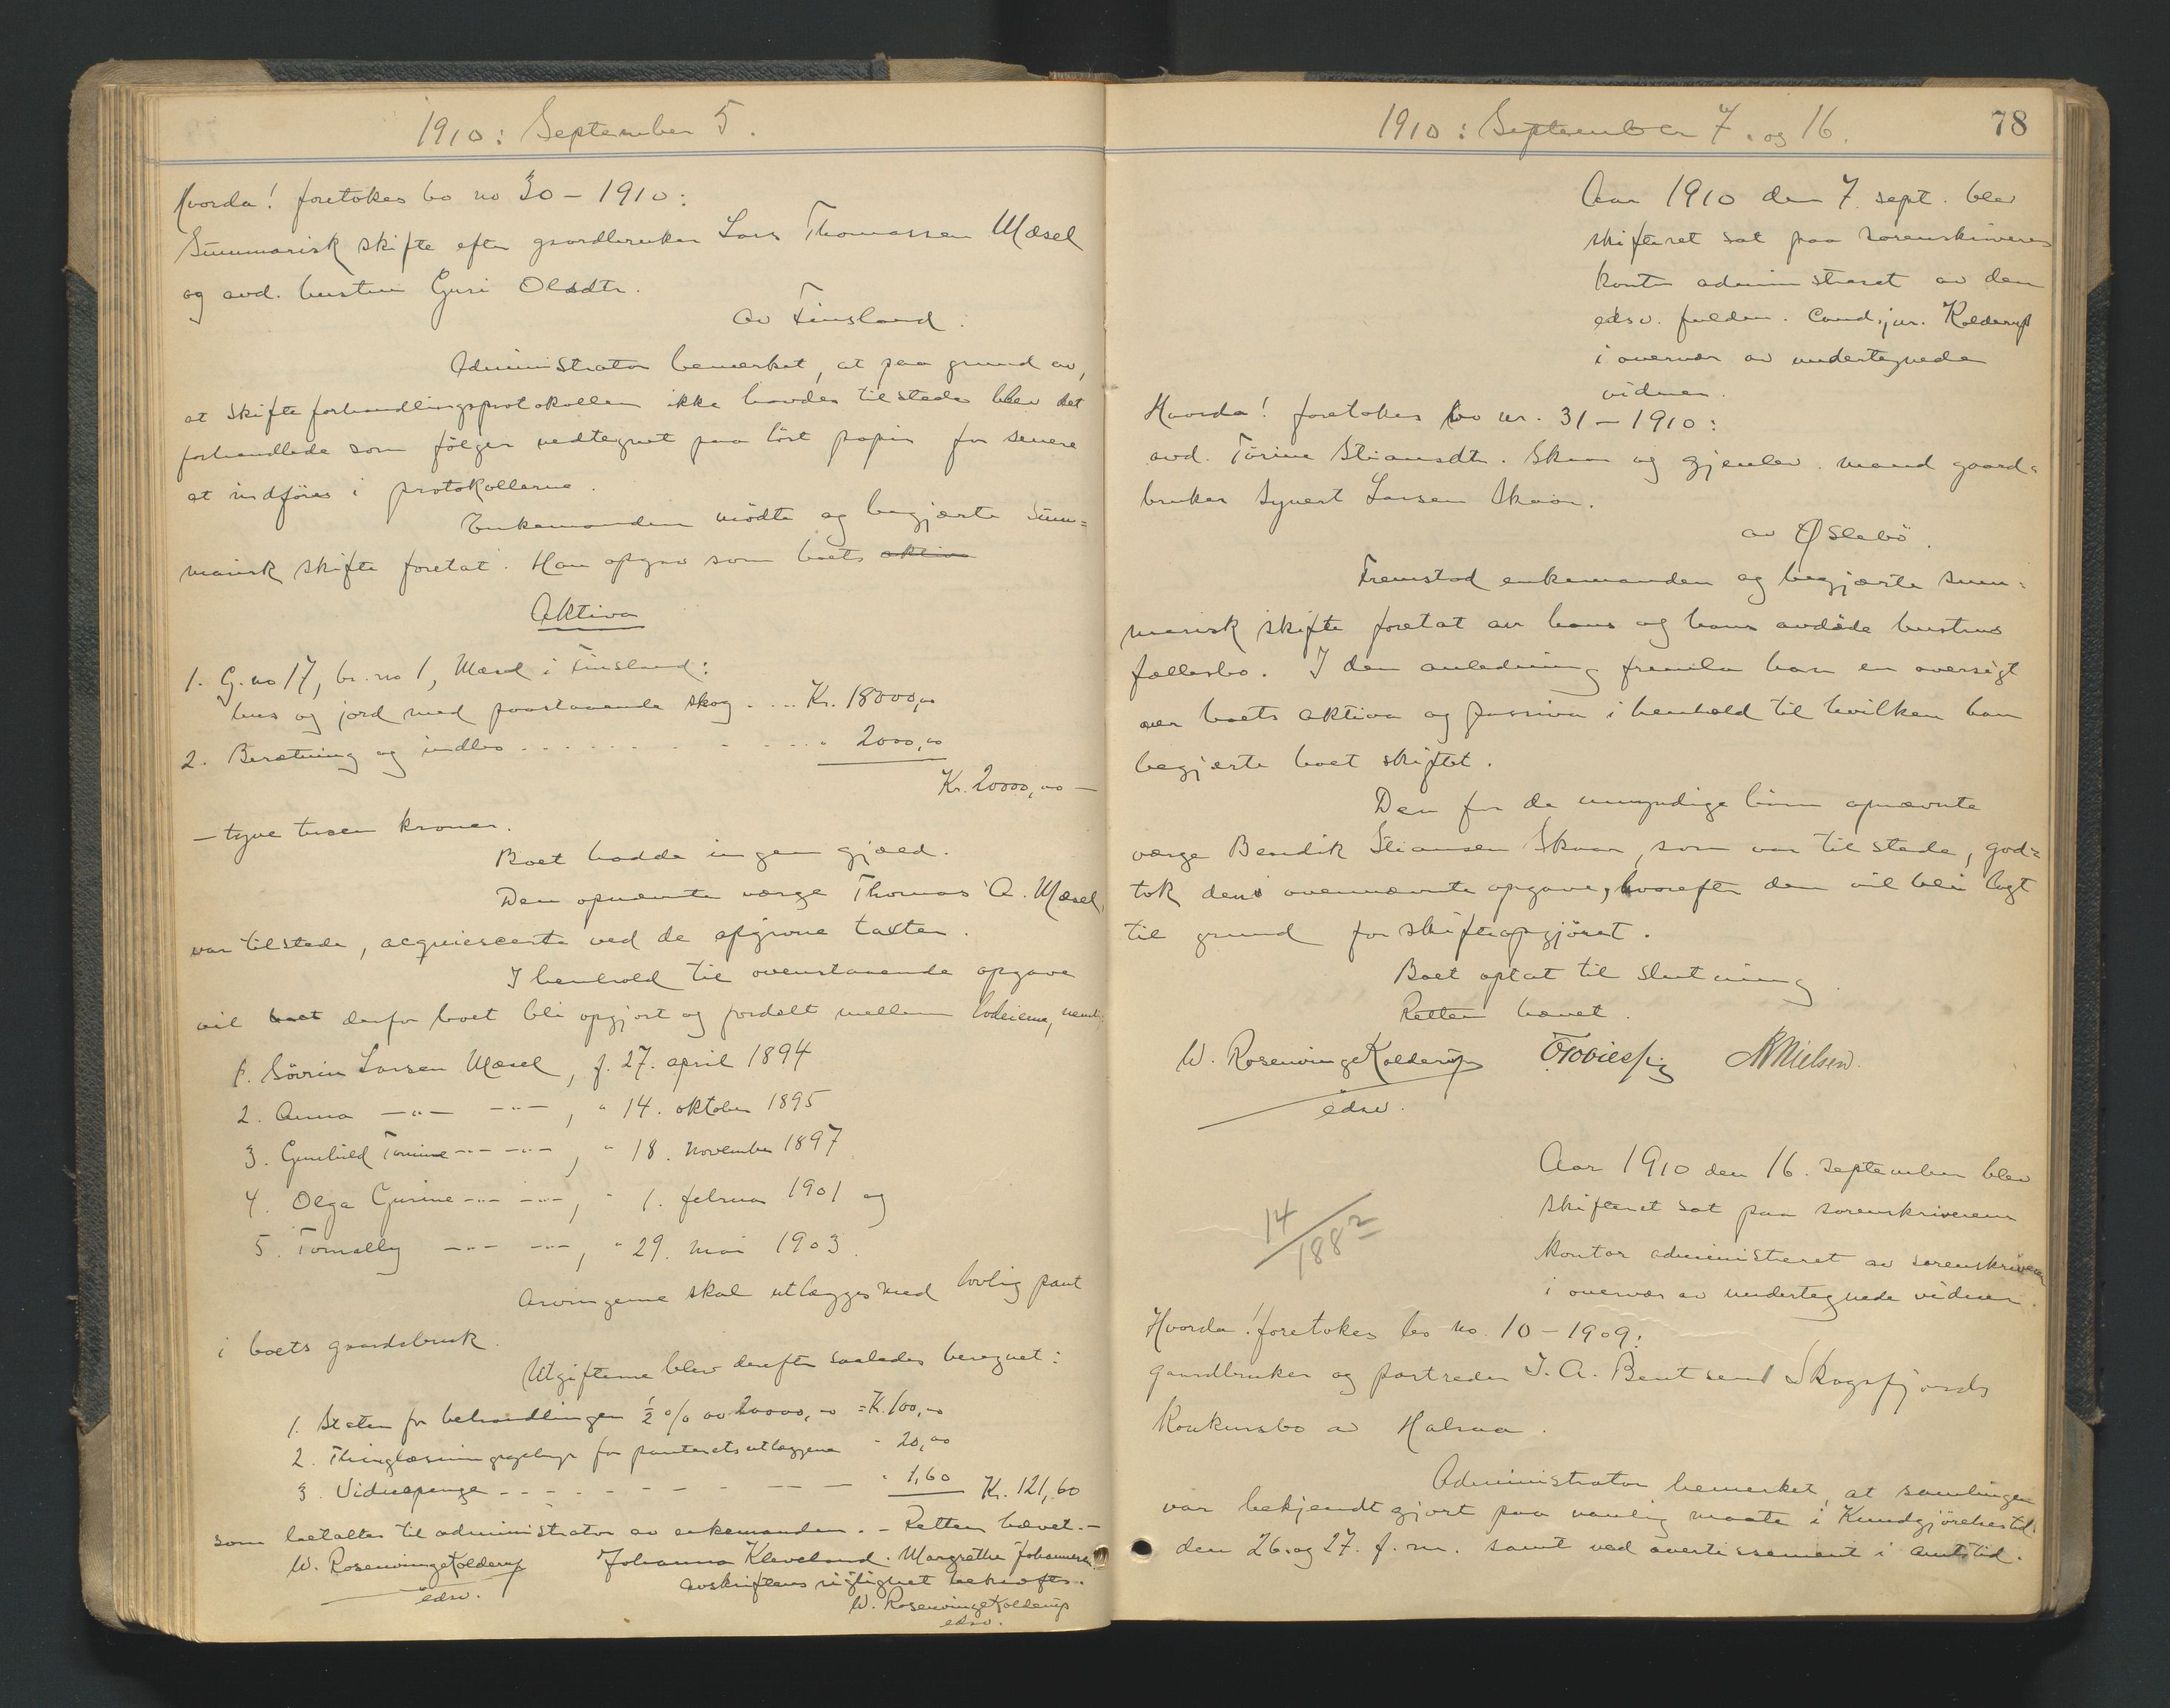 1910: September 5.
Hvorda! foretokes bo no 30 – 1910:
Summarisk skifte efter gaardbruker Lars Thomassen Mæsel
og avd. hustru Guri Olsdtr.
av Finsland.
Administrator bemerket, at paa grund av,
at skifteforhandlingsprotokollen ikke havdes tilstede blev det
forhandlede som følger nedtegnet paa löst papir for senere
at indföres i protokollerne.
Enkemanden mödte og begjærte sum=
marisk skifte foretat. Han opgav som boets aktiva
Aktiva
1. G. no 17, br. no 1, Mæsel i Finsland:
hus og jord med paastaaende skog .... Kr. 18000,00
2. Besætning og indbo . . . . . . . . . . . " 2000,00
Kr. 20000,00 –
– tyve tusen kroner.
Boet hadde ingen gjæld.
Den opnævnte værge Thomas A. Mæsel,
var tilstede, acquiescerte ved de opgivne takster.
I henhold til ovenstaaende opgave
vil boet derfor boet bli opgjort og fordelt mellem lodeierne, nemlig:
1. Sövrin Larsen Mæsel, f. 27. april 1894
2. Anna –"– –"–, " 14. oktober 1895
3. Gunhild Tomine –"– –"–, " 18. november 1897
4. Olga Gurine –"– –"–, " 1. februar 1901 og
5. Tomelly –"– –"–, " 29. mai 1903.
Arvingerne skal utlægges med lovlig pant
i boets gaardsbruk.
Utgifterne blev derefter saaledes beregnet:
1. Staten for behandlingen ½ % av 20000,00 = K. 100,00
2. Thinglæsningsgebyr for panteretsutlæggene " 20,00
3. Vidnepenge – – – – – – – – – " 1,60 Kr. 121,60
som betaltes til administrator av enkemanden. – Retten hævet. –
W. Rosenvinge Kolderup Johanna Kleveland. Margrethe Johannesen
edsv. Avskriftens rigtighet bekræftes.
W. Rosenvinge Kolderup
edsv.
1910: September 7. og 16. 78
Aar 1910 den 7. sept. blev
skifteret sat paa sorenskriverens
kontor administreret av den
edsv. fuldm. cand. jur. Kolderup
i overvær av undertegnede
vidner.
Hvorda! foretokes bo nr. 31 – 1910:
avd. Törine Stiansdtr. Skaar og gjenlev. mand gaard=
bruker Syvert Larsen Skaar.
av Øslebö.
Fremstod enkemanden og begjærte sum=
marisk skifte foretat av hans og hans avdöde hustrus
fællesbo. I den anledning fremla han en oversigt
over boets aktiva og passiva i henhold til hvilken han
begjærte boet skiftet.
Den for de umyndige börn opnævnte
værge Bendik Stiansen Skaar, som var tilstede, god=
tok den ovennævnte opgave, hvorefter den vil bli lagt
til grund for skifteopgjöret.
Boet optat til slutning.
Retten hævet.
W. Rosenvinge Kolderup F. Tobiessen N Nielsen.
edsv.
Aar 1910 den 16. september blev
skifteret sat paa sorenskriverens
kontor administreret av sorenskriveren
i overvær av undertegnede vidner.
14/188 2
Hvorda! foretokes bo no. 10 – 1909:
gaardbruker og partreder J. A. Bentsens Skogsfjords
konkursbo av Halsaa.
Administrator bemerket, at samlingen
var bekjendtgjort paa vanlig maate i Kundgjörelsestid.
den 26. og 27. f. m. samt ved avertissement i Amtstid.